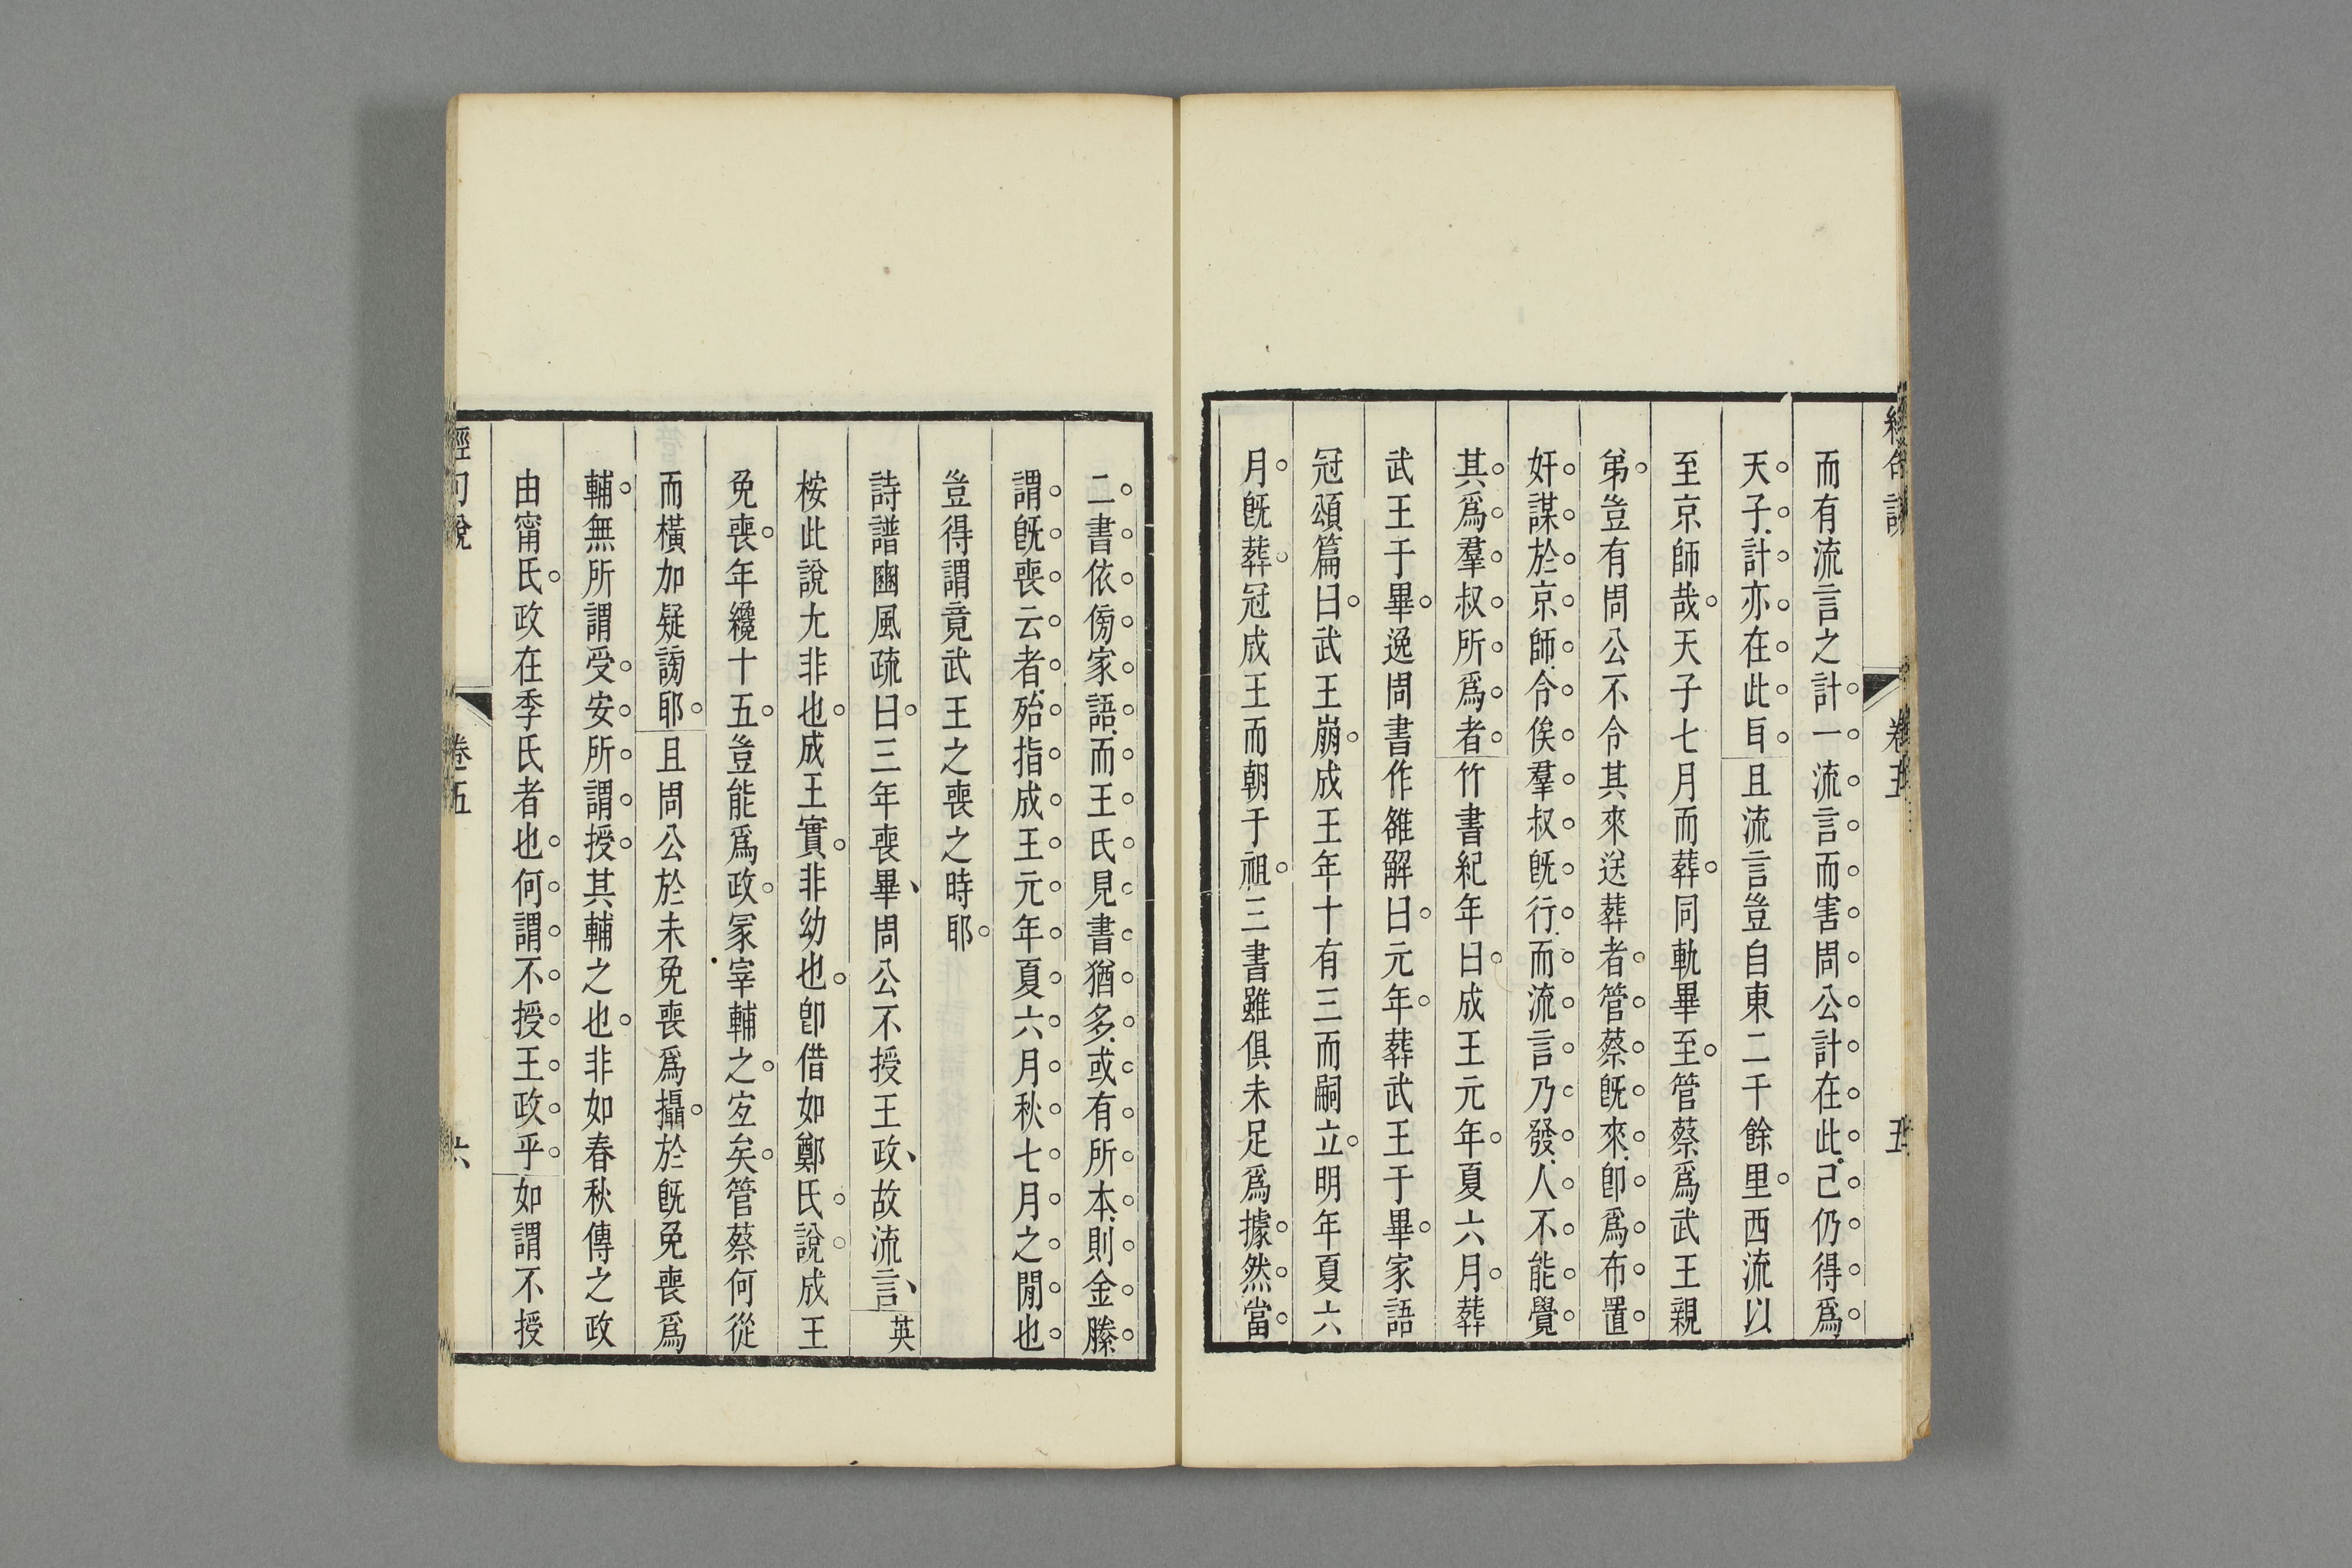 而有流言之計一流言而害周公計在此己仍得爲
天子計亦在此耳且流言豈自東二千餘里西流以
至京師哉天子七月而葬同軌畢至管蔡爲武王親
弟豈有周公不令其來送葬者管蔡旣來卽爲布置
奸謀於京師令俟羣叔旣行而流言乃發人不能覺
其爲羣叔所爲者竹書紀年曰成王元年夏六月葬
武王于畢逸周書作雒解曰元年葬武王于畢家語
冠頌篇曰武王崩成王年十有三而嗣立明年夏六
月旣葬冠成王而朝于祖三書雖俱未足爲據然當
卷五
五
二書依傍家語而王氏見書猶多或有所本則金縢
謂旣喪云者殆指成王元年夏六月秋七月之閒也
豈得謂竟武王之喪之時耶
詩譜豳風疏曰三年喪畢周公不授王政故流言英
桉此說尤非也成王實非幼也卽借如鄭氏說成王
免喪年纔十五豈能爲政冢宰輔之宐矣管蔡何從
而橫加疑謗耶且周公於未免喪爲攝於旣免喪爲
輔無所謂受安所謂授其輔之也非如春秋傳之政
由甯氏政在季氏者也何謂不授王政乎如謂不授
經句說
卷五
六